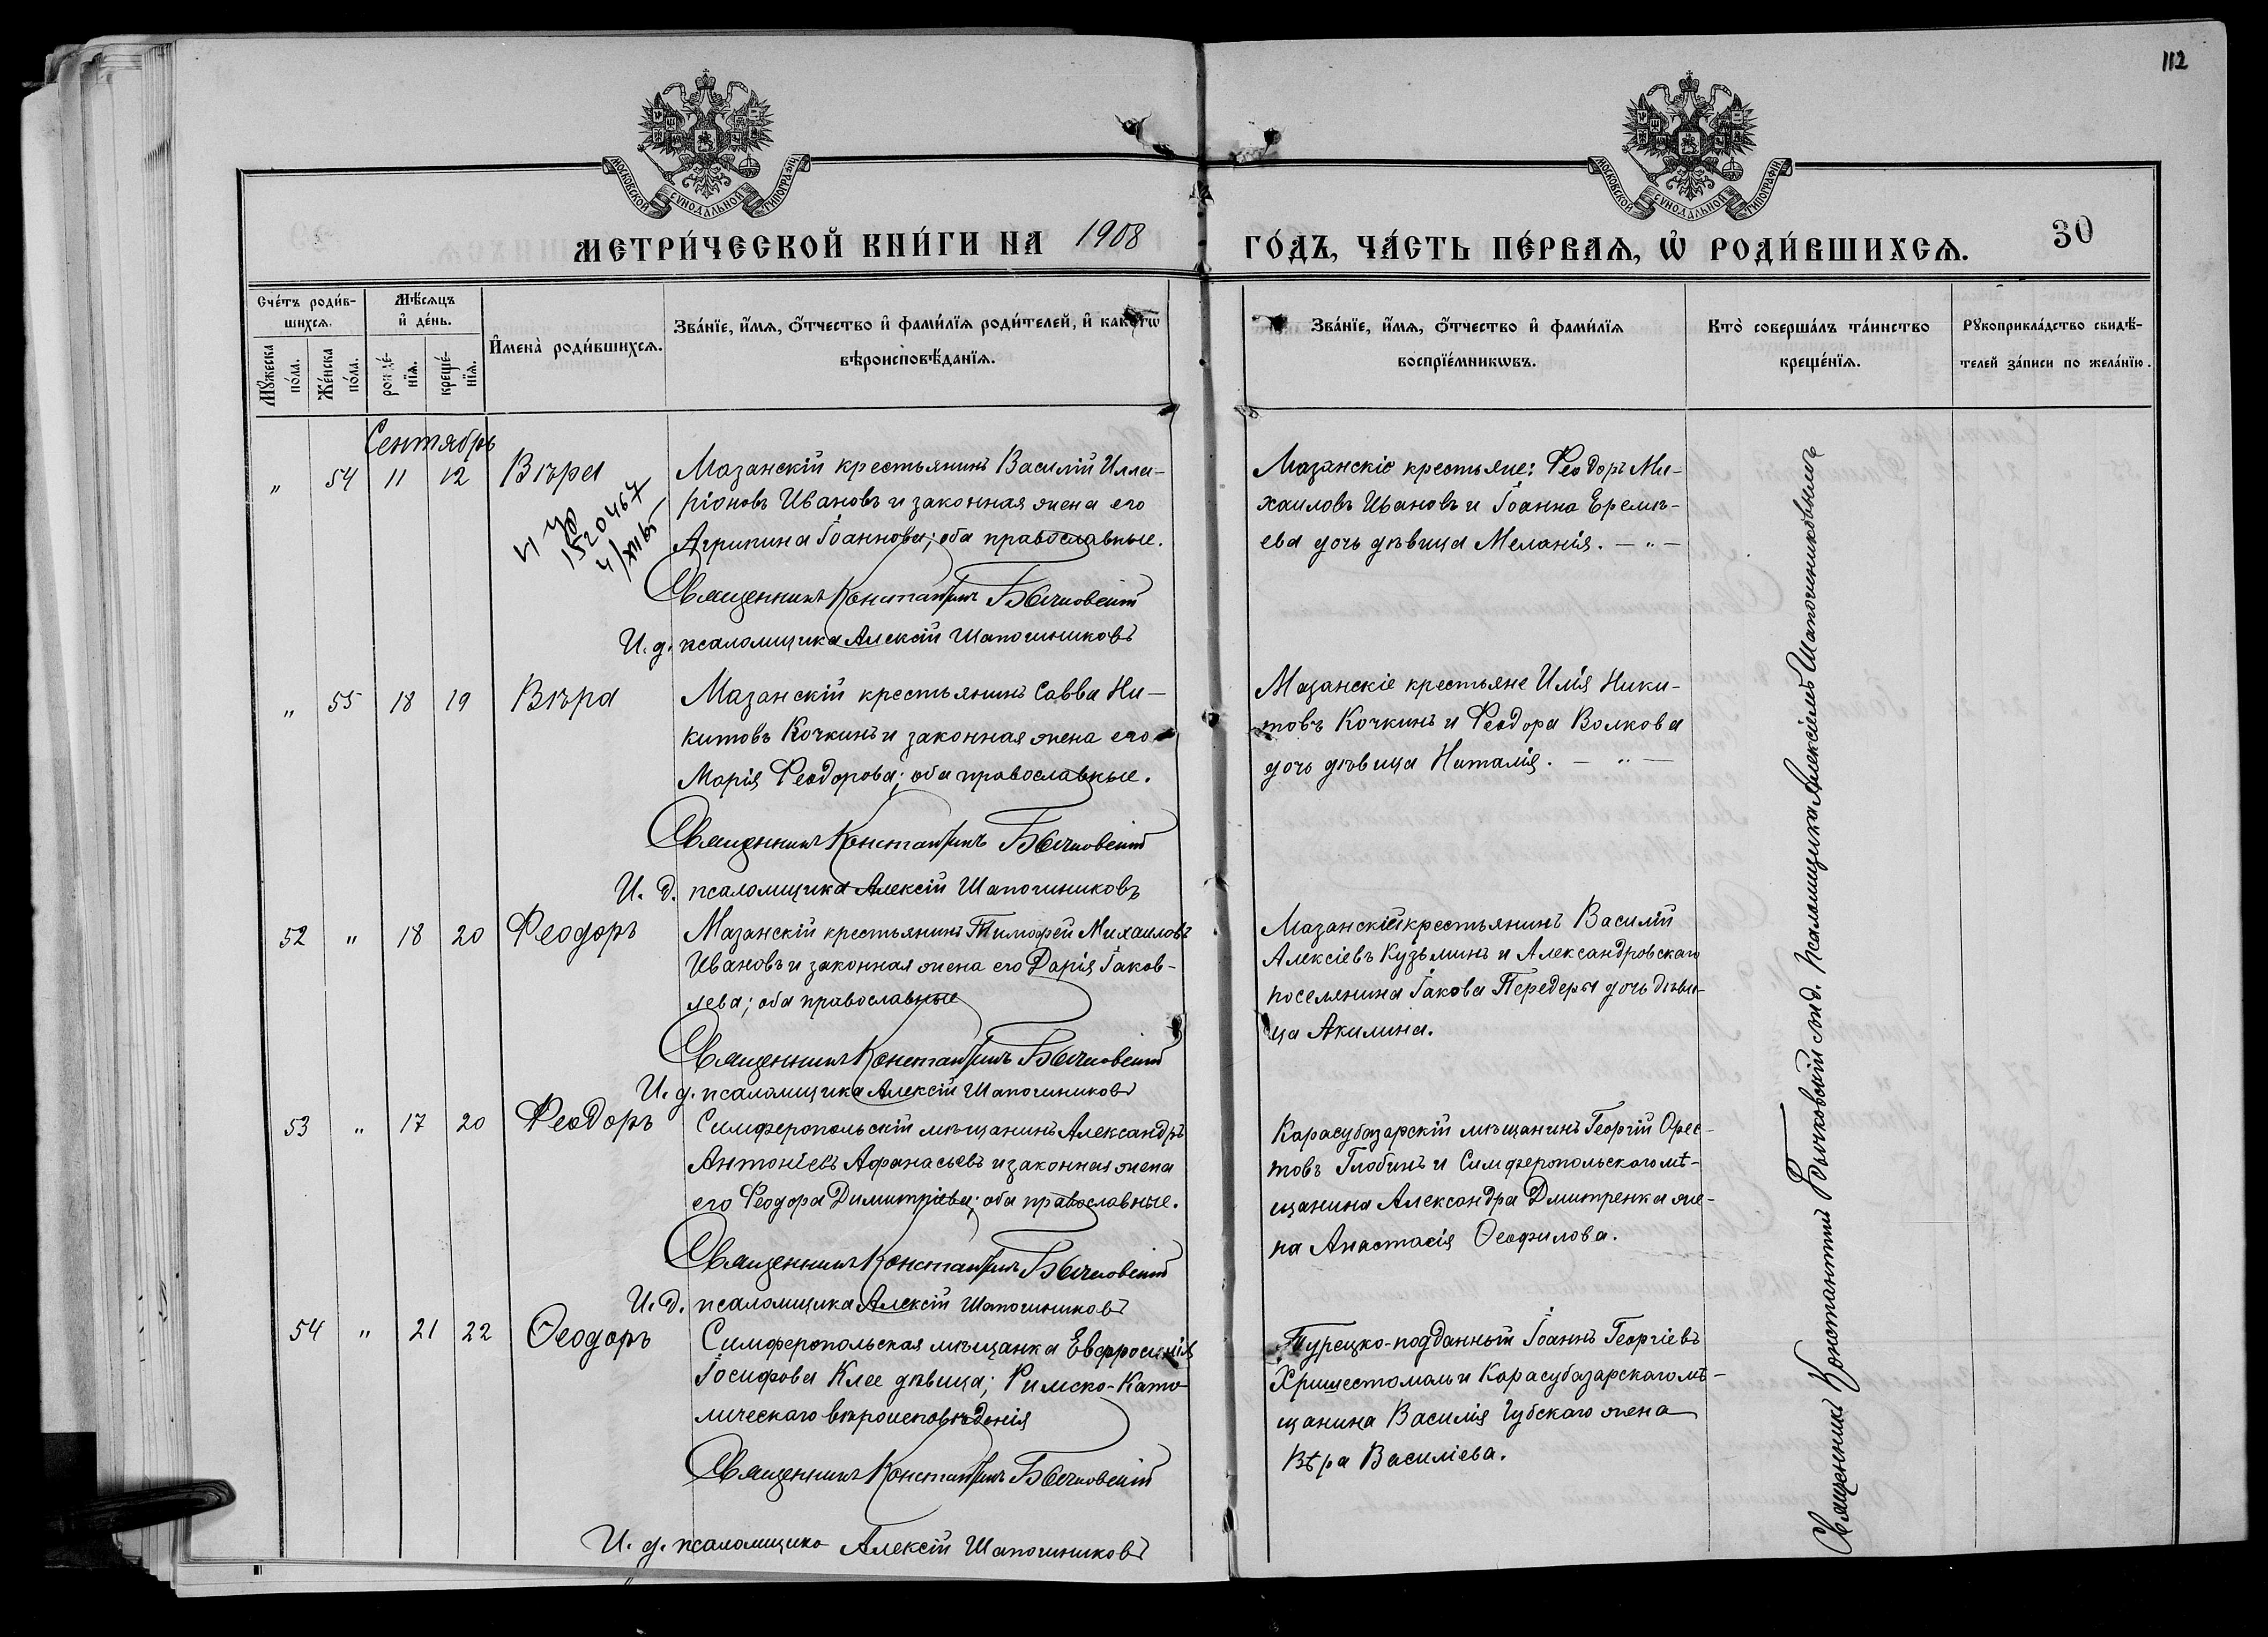 112
МОСКОВСКОЙ СѴНОДАЛЬНОЙ ТИПОГРАФІИ
МОСКОВСКОЙ СѴНОДАЛЬНОЙ ТИПОГРАФІИ
МЕТРИ́ЧЕСКОЙ КНИ́ГИ НА 1908
ГО́ДЪ, ЧА́СТЬ ПЕ́РВАѦ, Ѡ҆ РОДИ́ВШИХСѦ.
30
Сче́тъ роди́в-
шихсѧ.
Мꙋ́жеска
по́ла.
Же́нска
по́ла.
Мѣ́сѧцъ
и҆ де́нь.
рожде́-
нїѧ.
креще́-
нїѧ.
И҆мена̀ роди́вшихсѧ.
Зва́нїе, и҆́мѧ, ѻ҆́тчество и҆ фами́лїѧ роди́телей, и҆ како́гѡ
вѣроисповѣ́данїѧ.
Зва́нїе, и҆́мѧ, ѻ҆́тчество и҆ фами́лїѧ
воспрїе́мникѡвъ.
Кто̀ соверша́лъ та́инство
креще́нїѧ.
Рꙋкоприкла́дство свидѣ́-
телей за́писи по жела́нїю.
Сентябрь
" 54 11 12 Вѣра
1520467
4/XII 65
Мазанскій крестьянинъ Василій Илла-
ріоновъ Ивановъ и законная жена его
Агрипина Іоаннова; оба православные.
Священникъ Константинъ Бычковскій
И. д. псаломщика Алексій Шапочниковъ
Мазанскіе крестьяне: Феодоръ Ми-
хаиловъ Ивановъ и Іоанна Еремѣ-
ева дочь дѣвица Меланія. — " —
" 55 18 19 Вѣра
Мазанскій крестьянинъ Савва Ни-
китовъ Кочкинъ и законная жена его
Марія Феодорова; оба православные.
Священникъ Константинъ Бычковскій
И. д. псаломщика Алексій Шапочниковъ
Мазанскіе крестьяне Илія Ники-
товъ Кочкинъ и Феодора Волкова
дочь дѣвица Наталія. — " —
52 " 18 20 Феодоръ
Мазанскій крестьянинъ Тимофей Михаиловъ
Ивановъ и законная жена его Дарія Іаков-
лева; оба православные
Священникъ Константинъ Бычковскій
И. д. псаломщика Алексій Шапочниковъ
Мазанскій крестьянинъ Василій
Алексіевъ Кузьминъ и Александровскаго
поселянина Іакова Передеры дочь дѣви-
ца Акилина.
53 " 17 20 Феодоръ
Симферопольскій мѣщанинъ Александръ
Антоніевъ Афанасьевъ и законная жена
его Феодора Димитріева; оба православные.
Священникъ Константинъ Бычковскій
И. д. псаломщика Алексій Шапочниковъ
Карасубазарскій мѣщанинъ Георгій Орес-
товъ Глобинъ и Симферопольскаго мѣ-
щанина Александра Дмитренка же-
на Анастасія Ѳеофилова.
54 " 21 22 Ѳеодоръ
Симферопольская мѣщанка Евфросинія
Іосифова Клее дѣвица; Римско-Като-
лическаго вѣроисповѣданія
Священникъ Константинъ Бычковскій
И. д. псаломщика Алексій Шапочниковъ
Турецко-подданный Іоаннъ Георгіевъ
и Карасубазарскаго мѣ-
щанина Василія Губскаго жена
Вѣра Василіева.
Священникъ Константинъ Бычковскій съ и.д. Псаломщика Алексіемъ Шапочниковымъ